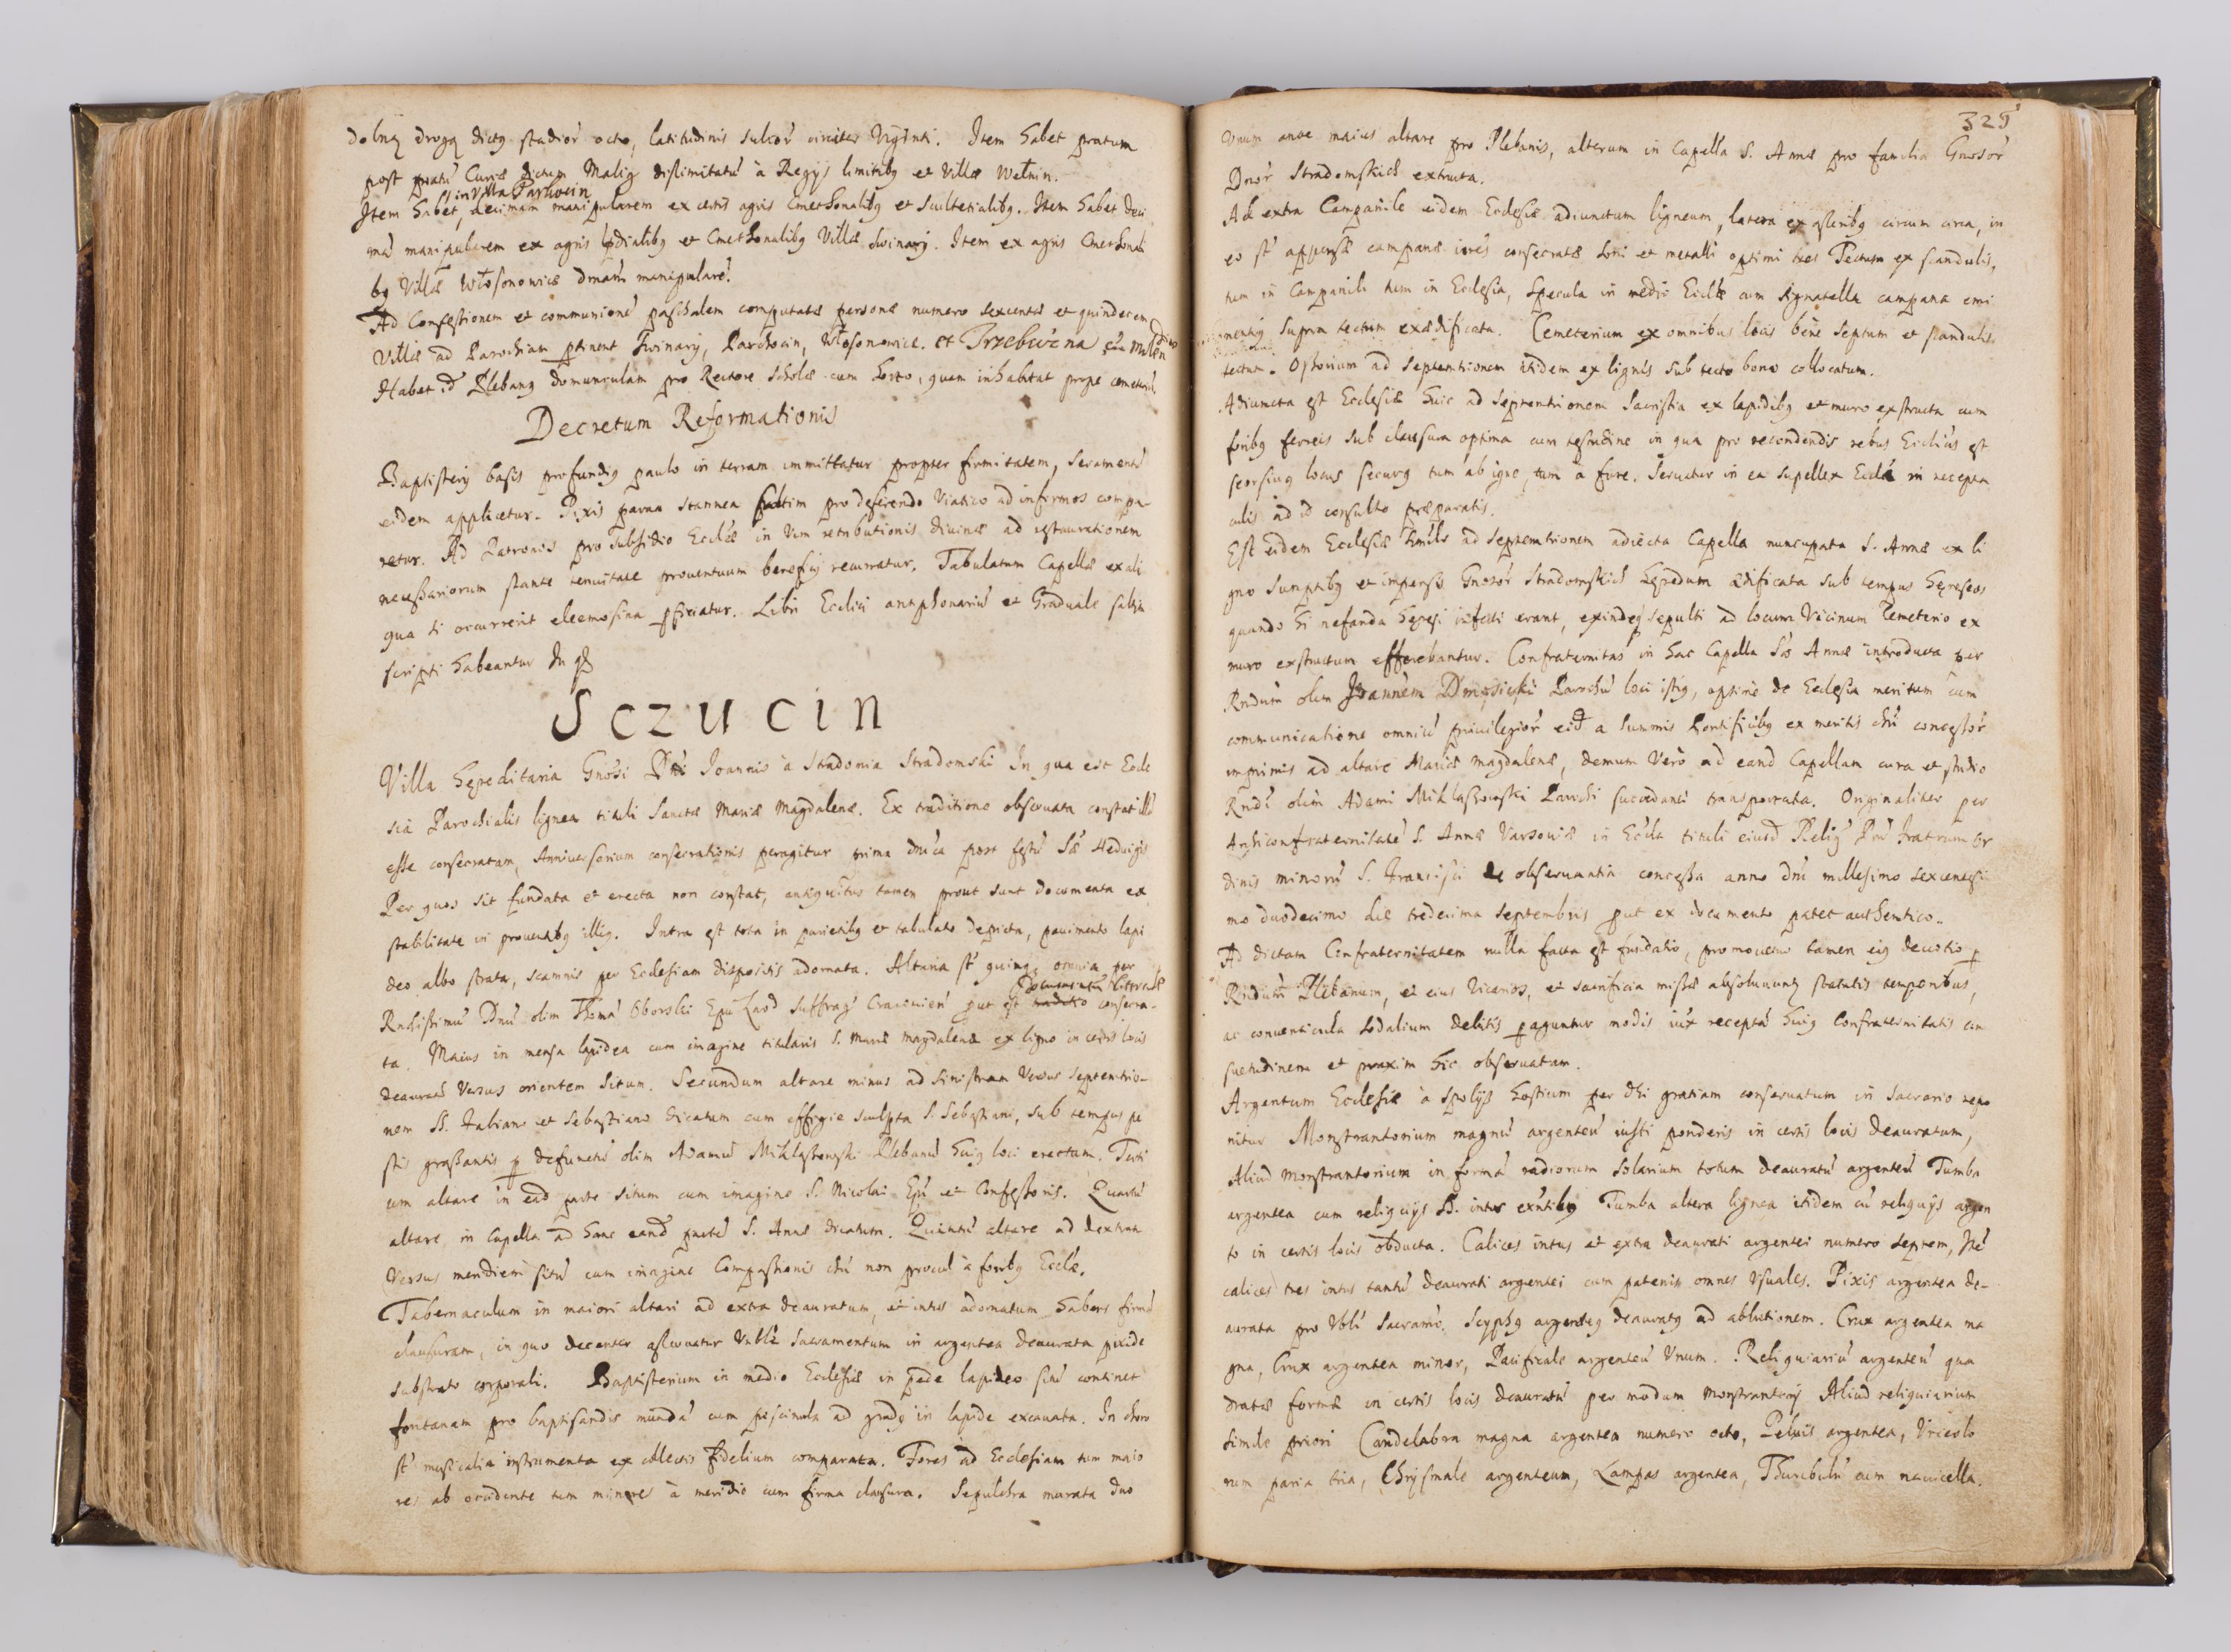 dolną drogą dictӡ stadiorū octo, latitudinis sulcorū circiter Viginti. Item habet pratum
post pratū Curiæ dictum Malig dislimitatū à Regijs limitibӡ et Villæ Wełnin.
in Villa Parchocin
Item habet, decimam manipularem ex certis agris Cmethonalibӡ et Scultetialibӡ. Item habet deci
mā manipularem ex agris prædialibӡ et Cmethonalibӡ Villæ Swinary. Item ex agris Cmethonali
bӡ Villæ Włosonowicæ dmām manipularē.
Ad Confessionem et communionē paschalem computatæ personæ numero sexcentæ et quindecem
Villæ ad Parochiam ptinent Swinary, Parchocin, Włosonowice. et Trzebwina
Habet id Plebanӡ domunculam pro Rectore Scholæ cum horto, quem inhabitat prope cemeteriū
Decretum Reformationis
Baptisterij basis profundiӡ paulo in terram immittatur propter firmitatem, seramentū
eidem applicetur. Pixis parva stannea saltim pro deferendo Viatico ad infirmos compa-
retur. Ad Patronos pro subsidio Ecclæ in Vim retributionis divinæ ad restaurationem
necessariorum stante tenuitate proventuum beneficij recurratur. Tabulatum Capellæ ex ali
qua si occurrerit eleemosina pficiatur. Libri Ecclici antiphonariū et Graduale saltim
scripti habeantur
Sczucin
Villa hæreditaria Gnosi Dni Joannis à Stradomia Stradomski In qua est Eccle
sia Parochialis lignea tituli Sanctæ Mariæ Magdalenæ. Ex traditione observata constat illā
esse consecratam, Anniversorium consecrationis peragitur prima dnica post festū Sæ Hedvigis
Per quos sit fundata et erecta non constat, antiquitus tamen prout sunt documenta ex
stabilitate in proventibӡ illiӡ. Intra est tota in parietibӡ et tabulato depicta, pavimento lapi
deo albo strata, scamnis per Ecclesiam dispositis adornata. Altaria st quinqӡ omnia per
documentū litterale
Rndissimū Dnū olim Thomā Oborski Epū Laod Suffrag Cracovien put est traditio consecra-
ta. Maius in mensa lapidea cum imagine titularis S. Mariæ Magdalenæ ex ligno in certis locis
deauratū Versus orientem situm. Secundum altare minus ad sinistram Versus septentrio-
nem SS. Fabiano et Sebastiano dicatum cum effigie sculpta S. Sebastiani, sub tempus pe
stis grassantis p defunctū olim Adamū Miklaszowski Plebanū huiӡ loci erectum. Terti
um altare in ead parte situm cum imagine S. Nicolai Epi et Confessoris. Quartū
altare in Capella ad hanc eand partē S. Annæ dicatum. Quintū altare ad dextram
Versus meridiem sitū cum imagine Compassionis dni non procul à foribӡ Ecclæ.
Tabernaculum in maiori altari ad extra deauratum, et intus adornatum habens firmā
clausuram, in quo decenter asservatur Vnble Sacramentum in argentea deaurata pixide
substrato corporali. Baptisterium in medio Ecclesiæ in pede lapideo sitū continet
fontanam pro baptisandis mundā cum piscinula ad gradӡ in lapide excavata. In choro
st musicalia instrumenta ex collectis fidelium comparata. Fores ad Ecclesiam tum maio
res ab occidente tum minores à meridie cum firma clausura. Sepulchra murata duo
329
Vnum ante maius altare pro Plebanis, alterum in Capella S. Annæ pro familia Gnosor
Dnor Stradomskich extructa.
Ab extra Campanile eidem Ecclesiæ adiunctum ligneum, latera ex asseribӡ circum circa, in
eo st appensæ campanæ tres consecratæ soni et metalli optimi tres Tectum ex scandulis,
tum in Campanili tum in Ecclesia, Specula in medio Ecclæ cum signatella campana emi
nentiӡ supra tectum exædificata. Cemeterium ex omnibus locis bene septum et scandulis
tectum. Ossorium ad Septemtrionem itidem ex lignis sub tecto bono collocatum.
Adiuncta est Ecclesiæ huic ad septentrionem Sacristia ex lapidibӡ et muro exstructa cum
foribӡ ferreis sub clausura optima cum testudine in qua pro recondendis rebus Ecclicis est
seorsivӡ locus securӡ tum ab igne, tum à fure. Servatur in ea supellex Ecclæ in recepta
culis ad id consulto præparatis.
Est eidem Ecclesiæ similr ad septemtrionem adiecta Capella nuncupata S. Annæ ex li
gno sumptibӡ et impensis Gnosor Stradomskich hæredum ædificata sub tempus hæreseos
quando hi nefanda hæresi infecti erant, exindeqӡ sepulti ad locum Vicinum Cemeterio ex
muro exstructum efferebantur. Confraternitas in hac Capella Sæ Annæ introducta per
Rndum olim Joannem Dmosicki Parochū loci istiӡ, optime de Ecclesia meritum cum
communicatione omniū privilegiorū eid a summis Pontificibӡ ex meritis dni concessor
inprimis ad altare Mariæ Magdalenæ, demum Vero ad eand Capellam cura et studio
Rndi olim Adami Miklaszowski Parochi succedanei transportata. Originaliter per
Archiconfraternitatē S. Annæ Varsoviæ in Eccla tituli eiusd Relig Pru fratrum Or
dinis minorū S. Francisci de observantia concessa anno dni millesimo sexcentesi
mo duodecimo die tredecima Septembris put ex documento patet authentico.
Ad dictam Confraternitatem nulla facta est fundatio, promovetur tamen eiӡ devotio p
Rndum Plebanum, et eius Vicarios, et sacrificia missæ absolvuntӡ statutis temporibus,
ac conventicula sodalium debitis paguntur modis iux receptā huiӡ Confraternitatis con
suetudinem et praxim hic observatam.
Argentum Ecclesiæ à spolijs hostium per dei gratiam conservatum in Sacrario repo
nitur Monstrantorium magnū argenteū iusti ponderis in certis locis deauratum,
Aliud monstrantorium in formā radiorum solarium totum deauratū argenteū Tumba
argentea cum reliquijs SS. intus exntibӡ Tumba altera lignea itidem cū reliquijs argen
to in certis locis obducta. Calices intus et extra deaurati argentei numero septem, Ite
calices tres intus tantū deaurati argentei cum patenis omnes Vsuales. Pixis argentea de-
aurata pro Vbli Sacramo. Scyphӡ argenteӡ deauratӡ ad ablutionem. Crux argentea ma
gna, Crux argentea minor, Pacificale argenteū Vnum. Reliquiariū argenteū qua
dratæ formæ in certis locis deauratū per modum monstrantorij Aliud reliquiarium
simile priori Candelabra magna argentea numero octo, Pelvis argentea, Vrceolo
rum paria tria, Chrysmale argenteum, Lampas argentea, Thuribulū cum navicella.